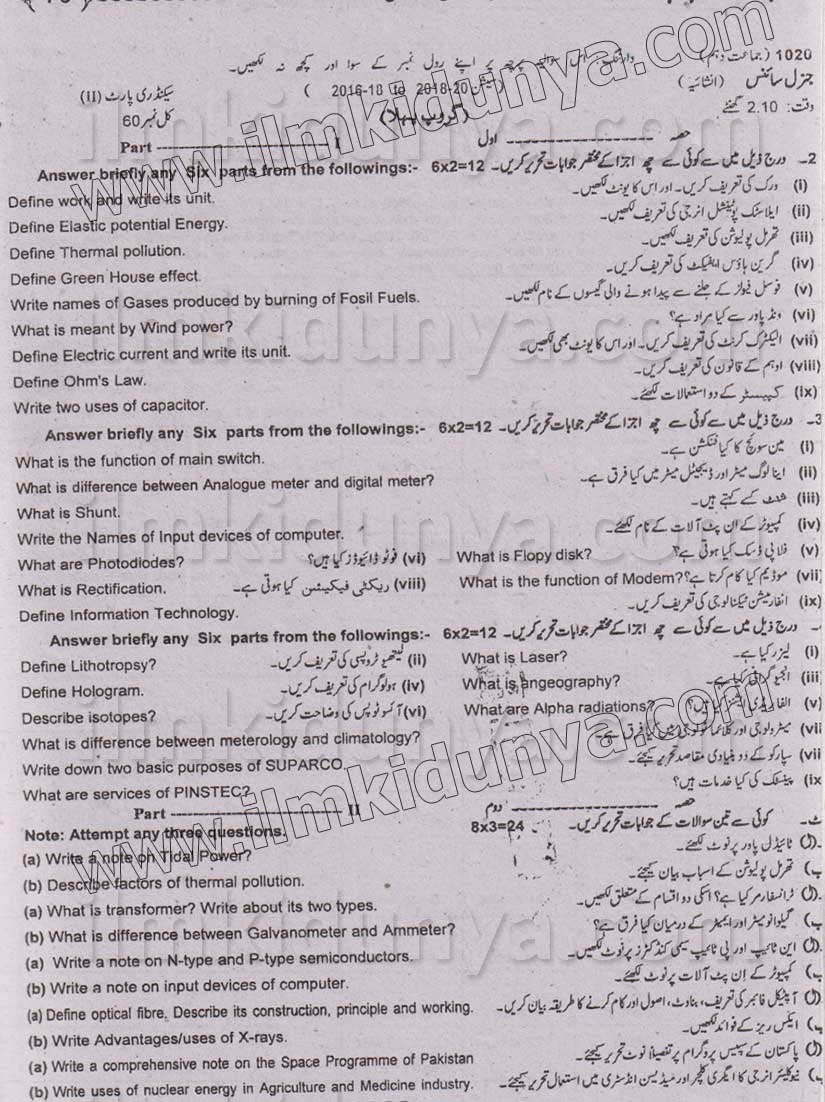 1020 (جماعت دہم) وارننگ: اس سوالیہ پرچہ پر اپنے رول نمبر کے سوا اور کچھ نہ لکھیں۔
جنرل سائنس (انشائیہ) (سیشن 2016-18 to 2018-20) سیکنڈری پارٹ (II)
وقت: 2.10 گھنٹے (گروپ پہلا) کل نمبر 60
Part ------------------ I حصہ ------------------ اول
Answer briefly any Six parts from the followings:- 6x2=12 2۔ درج ذیل میں سے کوئی سے چھ اجزا کے مختصر جوابات تحریر کریں۔
Define work and write its unit. (i) ورک کی تعریف کریں۔ اور اس کا یونٹ لکھیں۔
Define Elastic potential Energy. (ii) ایلاسٹک پوٹینشل انرجی کی تعریف لکھیں۔
Define Thermal pollution. (iii) تھرمل پولیوشن کی تعریف لکھیں۔
Define Green House effect. (iv) گرین ہاؤس ایفیکٹ کی تعریف کریں۔
Write names of Gases produced by burning of Fosil Fuels. (v) فوسل فیولز کے جلنے سے پیدا ہونے والی گیسوں کے نام لکھیں۔
What is meant by Wind power? (vi) ونڈ پاور سے کیا مراد ہے؟
Define Electric current and write its unit. (vii) الیکٹرک کرنٹ کی تعریف کریں۔ اور اس کا یونٹ بھی لکھیں۔
Define Ohm's Law. (viii) اوہم کے قانون کی تعریف کریں۔
Write two uses of capacitor. (ix) کپیسٹر کے دو استعمالات لکھئے۔
Answer briefly any Six parts from the followings:- 6x2=12 3۔ درج ذیل میں سے کوئی سے چھ اجزا کے مختصر جوابات تحریر کریں۔
What is the function of main switch. (i) مین سوئچ کا کیا فنکشن ہے۔
What is difference between Analogue meter and digital meter? (ii) اینالوگ میٹر اور ڈیجیٹل میٹر میں کیا فرق ہے۔
What is Shunt. (iii) شنٹ کسے کہتے ہیں۔
Write the Names of Input devices of computer. (iv) کمپیوٹر کے ان پٹ آلات کے نام لکھئے۔
What are Photodiodes? (vi) فوٹو ڈائیوڈز کیا ہیں؟ What is Flopy disk? (v) فلاپی ڈسک کیا ہوتی ہے؟
What is Rectification. (viii) ریکٹی فیکیشن کیا ہوتی ہے۔ What is the function of Modem? (vii) موڈیم کیا کام کرتا ہے؟
Define Information Technology. (ix) انفارمیشن ٹیکنالوجی کی تعریف کریں۔
Answer briefly any Six parts from the followings:- 6x2=12 ۔ درج ذیل میں سے کوئی سے چھ اجزا کے مختصر جوابات تحریر کریں۔
Define Lithotropsy? (ii) لیتھوٹروپسی کی تعریف کریں۔ What is Laser? (i) لیزر کیا ہے۔
Define Hologram. (iv) ہولوگرام کی تعریف کریں۔ What is angeography? (iii) انجیوگرافی کیا ہے۔
Describe isotopes? (vi) آئسوٹوپس کی وضاحت کریں۔ What are Alpha radiations? (v) الفا ریڈی ایشنز کیا ہیں؟
What is difference between meterology and climatology? (vii میٹرولوجی اور کلائماٹولوجی میں کیا فرق ہے۔
Write down two basic purposes of SUPARCO. (vii سپارکو کے دو بنیادی مقاصد تحریر کیجئے۔
What are services of PINSTEC? (ix پینسٹک کی کیا خدمات ہیں؟
Part ------------------ II حصہ ------------------ دوم
Note: Attempt any three questions. 8x3=24 نوٹ۔ کوئی سے تین سوالات کے جوابات تحریر کریں۔
(a) Write a note on Tidal Power? (ا) ٹائیڈل پاور پر نوٹ لکھئے۔
(b) Describe factors of thermal pollution. ب) تھرمل پولیوشن کے اسباب بیان کیجئے۔
(a) What is transformer? Write about its two types. (ا) ٹرانسفارمر کیا ہے؟ اسکی دو اقسام کے متعلق لکھیں۔
(b) What is difference between Galvanometer and Ammeter? ب) گیلوانومیٹر اور ایمیٹر کے درمیان کیا فرق ہے؟
(a) Write a note on N-type and P-type semiconductors. (ا) این ٹائپ اور پی ٹائپ سیمی کنڈکٹرز پر نوٹ لکھیں۔
(b) Write a note on input devices of computer. ب) کمپیوٹر کے ان پٹ آلات پر نوٹ لکھئے۔
(a) Define optical fibre. Describe its construction, principle and working. (ا) آپٹیکل فائبر کی تعریف، بناوٹ، اصول اور کام کرنے کا طریقہ بیان کریں۔
(b) Write Advantages/uses of X-rays. ب) ایکس ریز کے فوائد لکھیں۔
(a) Write a comprehensive note on the Space Programme of Pakistan (ا) پاکستان کے سپیس پروگرام پر تفصیلاً نوٹ تحریر کیجئے۔
(b) Write uses of nuclear energy in Agriculture and Medicine industry. ب) نیوکلیئر انرجی کا ایگری کلچر اور میڈیسن انڈسٹری میں استعمال تحریر کیجئے۔
www.ilmkidunya.com
www.ilmkidunya.com
ilmkidunya.com
ilmkidunya.com
ilmkidunya.com
ilmkidunya.com
ilmkidunya.com